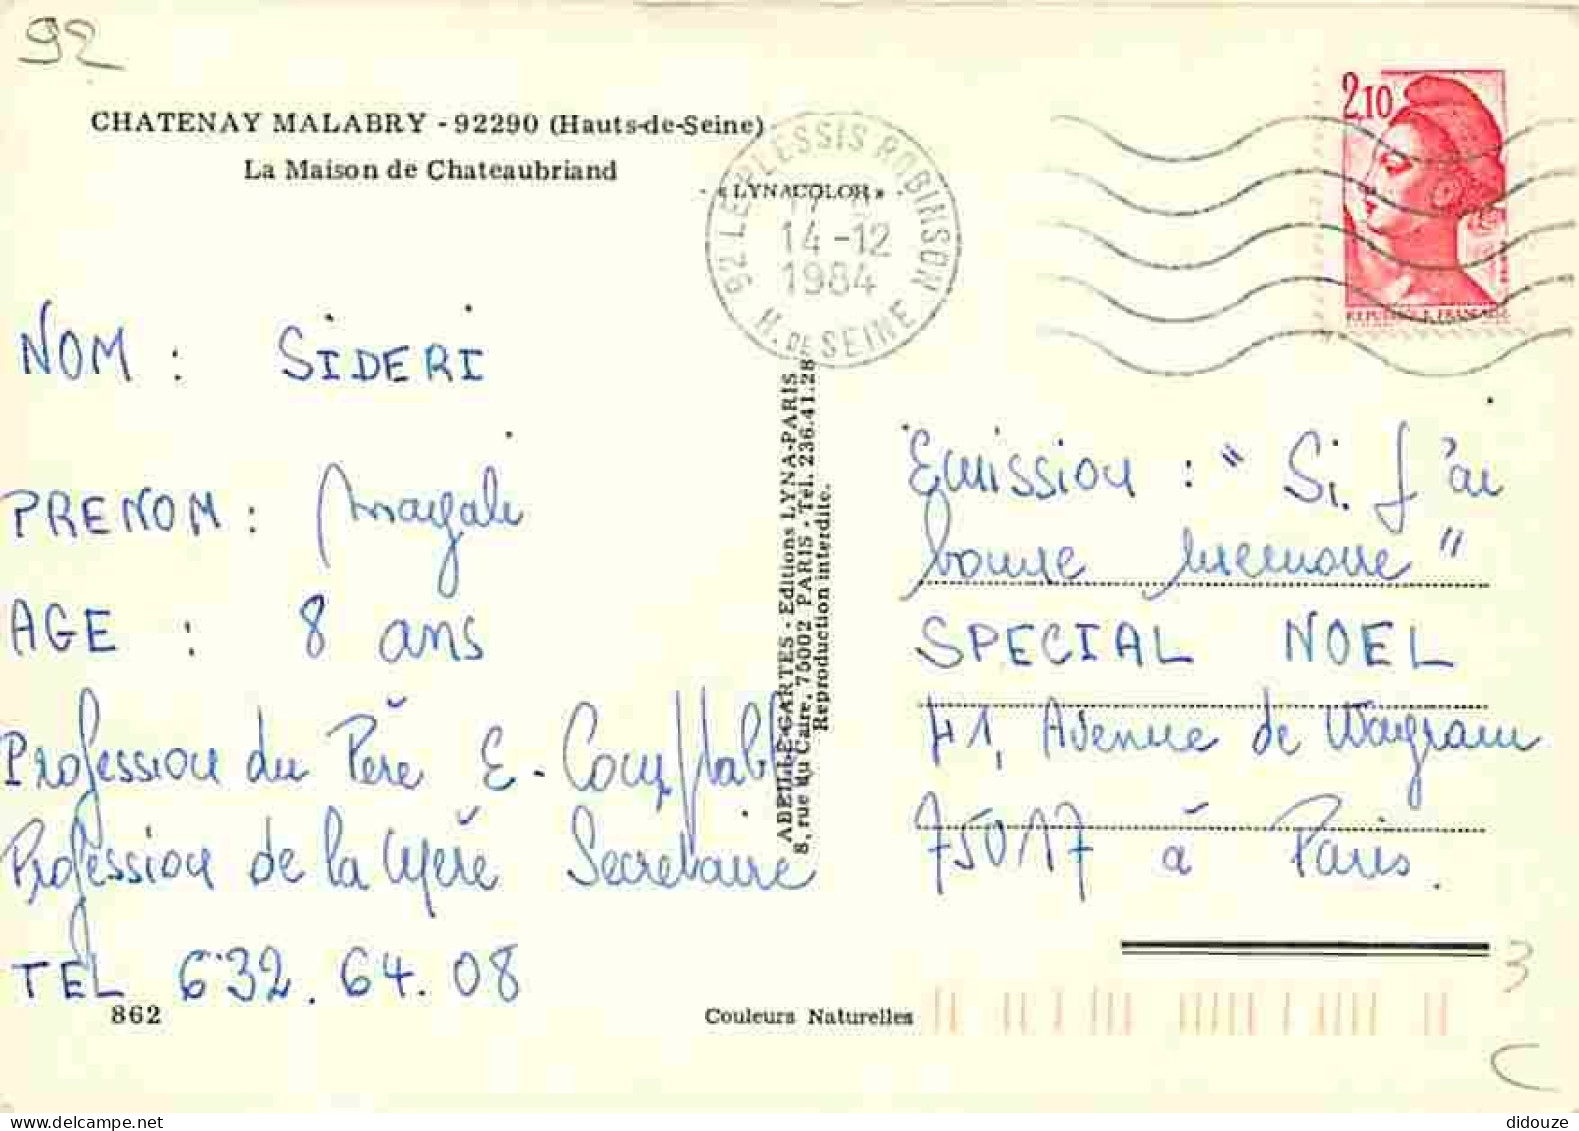 92
CHATENAY MALABRY - 92290 (Hauts-de-Seine)
La Maison de Chateaubriand
« LYNACOLOR »
92 LE PLESSIS ROBINSON
14-12
1984
H. DE SEINE
2,10
REPUBLIQUE FRANÇAISE
NOM : SIDERI
PRENOM : Magali
AGE : 8 ans
Profession du Père E. Comptable
Profession de la Mère Secretaire
TEL 632.64.08
862
ABEILLE-CARTES - Editions LYNA-PARIS
8, rue du Caire, 75002 PARIS - Tél. 236.41.28
Reproduction interdite.
Emission : "Si j'ai
bonne memoire"
SPECIAL NOEL
41, Avenue de Wagram
75017 à Paris.
3
Couleurs Naturelles
didouze